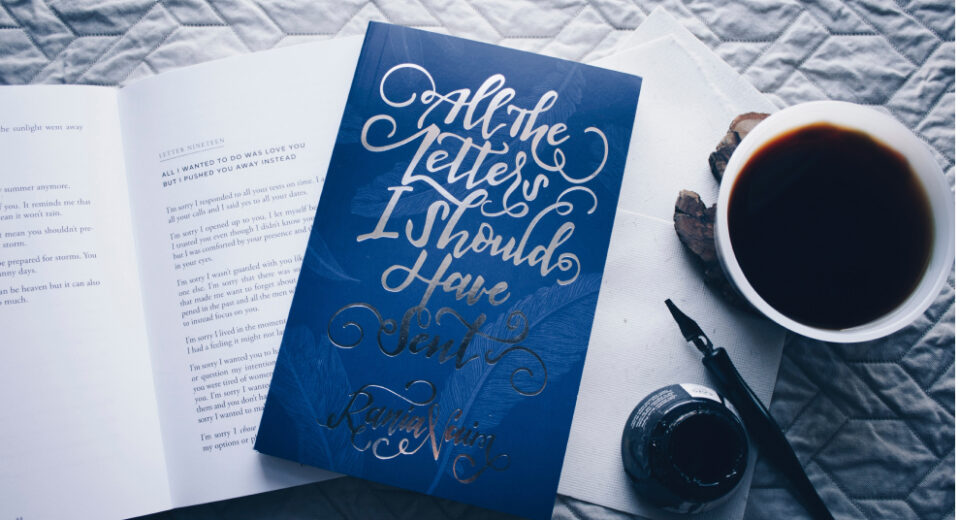 he sunlight went away
summer anymore.
f you. It reminds me that
ean it won't rain.
t mean you shouldn't pre-
storm.
be prepared for storms. You
nny days.
an be heaven but it can also
o much.
LETTER NINETEEN
ALL I WANTED TO DO WAS LOVE YOU
BUT I PUSHED YOU AWAY INSTEAD
I'm sorry I responded to all your texts on time. I a
all your calls and I said yes to all your dates.
I'm sorry I opened up to you. I let myself b
I trusted you even though I didn't know you
but I was comforted by your presence and
in your eyes.
I'm sorry I wasn't guarded with you lik
one else. I'm sorry that there was
that made me want to forget about
pened in the past and all the men w
to instead focus on you.
I'm sorry I lived in the moment
I had a feeling it might not la
I'm sorry I wanted you to h
or question my intention
you were tired of women
them and you don't ha
sorry I wanted to ma
I'm sorry I
my options or p
All the
Letters
I Should
Have
Sent
Rania Naim